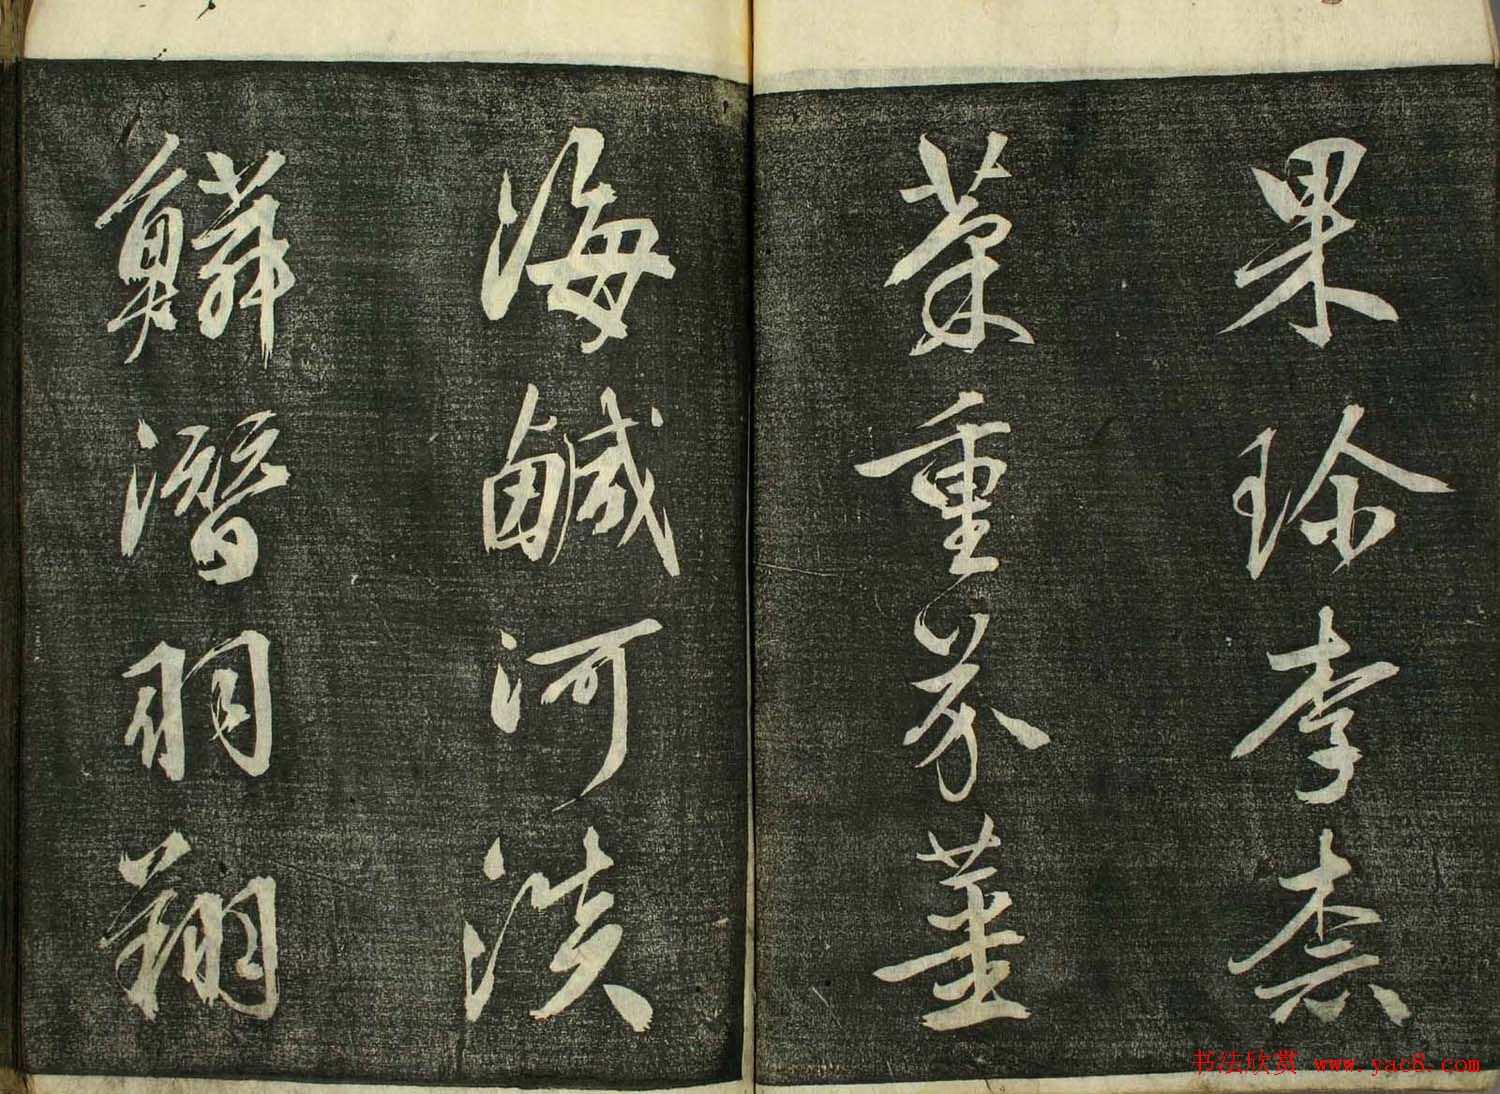 果珍李柰
菜重芥薑
海鹹河淡
鱗潛羽翔
书法欣赏 www.yac8.com